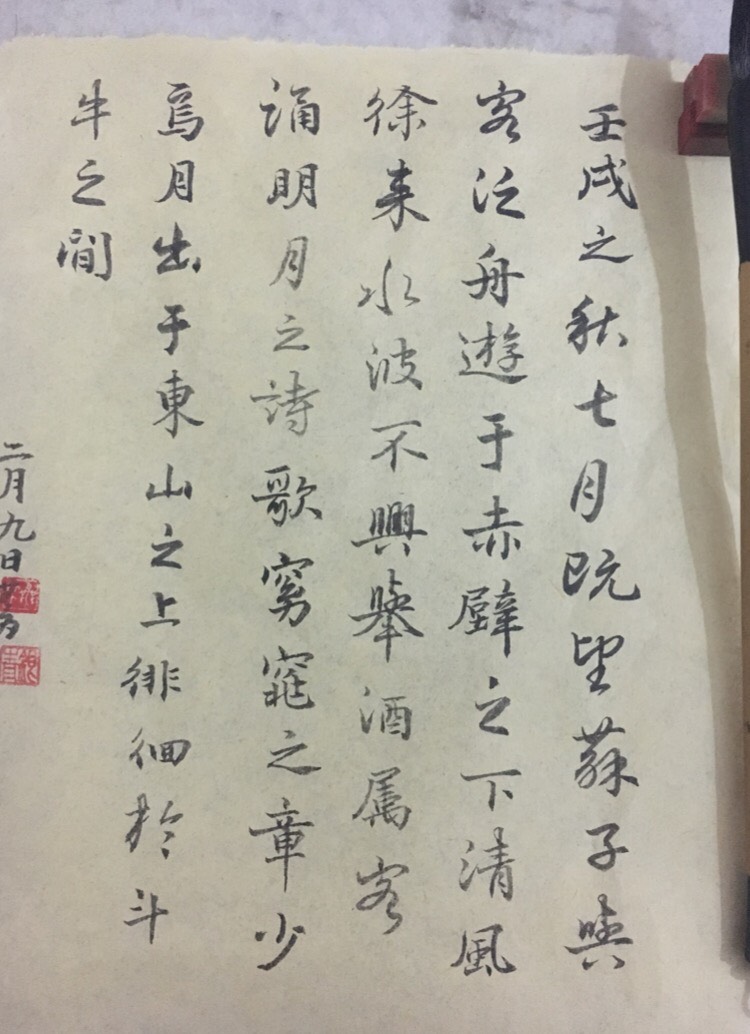 壬戌之秋七月既望蘇子與
客泛舟遊于赤壁之下清風
徐来水波不興舉酒属客
誦明月之詩歌窈窕之章少
焉月出于東山之上徘徊於斗
牛之間
二月九日